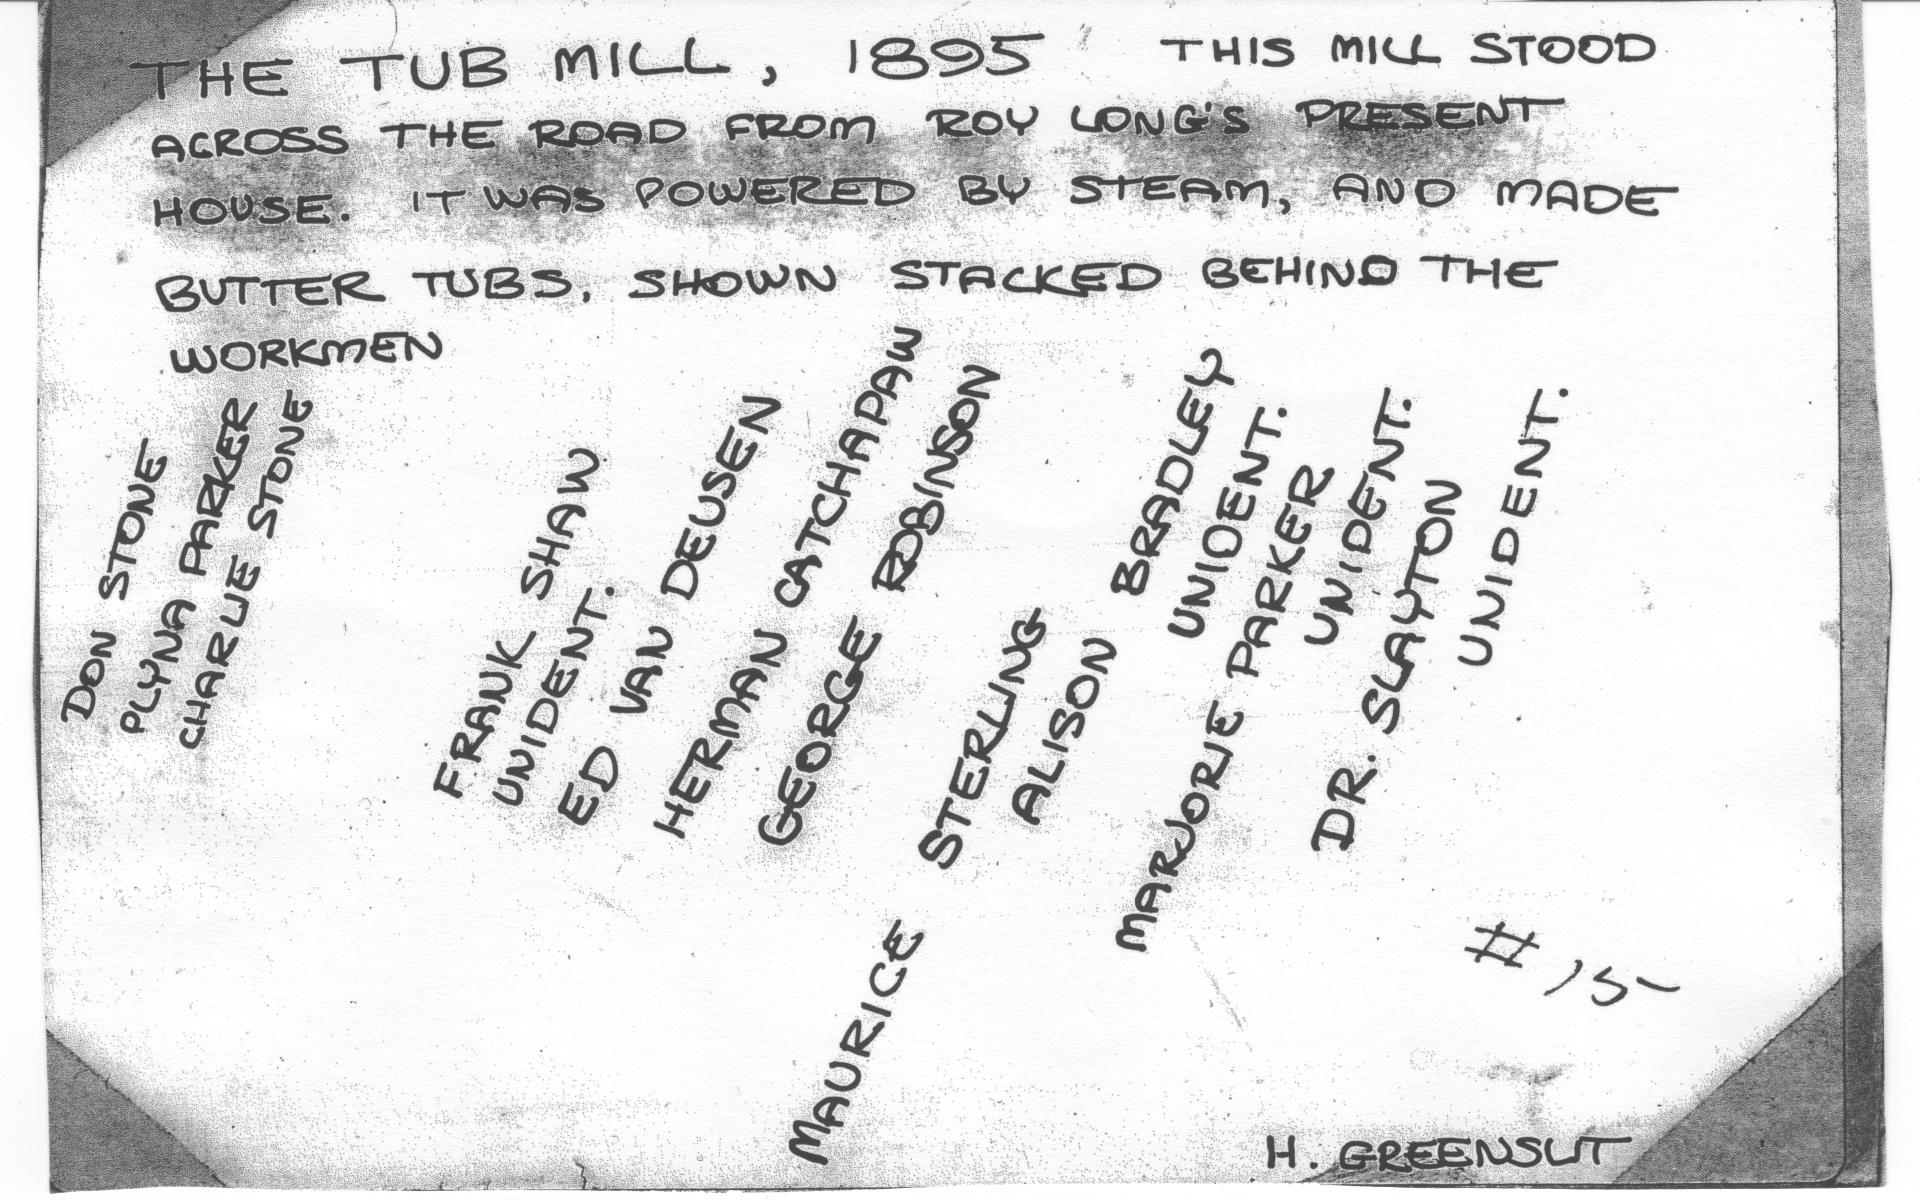 THE TUB MILL, 1895 THIS MILL STOOD
ACROSS THE ROAD FROM ROY LONG'S PRESENT
HOUSE. IT WAS POWERED BY STEAM, AND MADE
BUTTER TUBS, SHOWN STACKED BEHIND THE
WORKMEN
DON STONE
PLYNA PARKER
CHARLIE STONE
FRANK SHAW
UNIDENT.
ED VAN DEUSEN
HERMAN CATCHAPAW
GEORGE ROBINSON
MAURICE STERLING
ALISON BRADLEY
UNIDENT.
MARJORIE PARKER
UNIDENT.
DR. SLAYTON
UNIDENT.
# 15
H. GREENSLIT